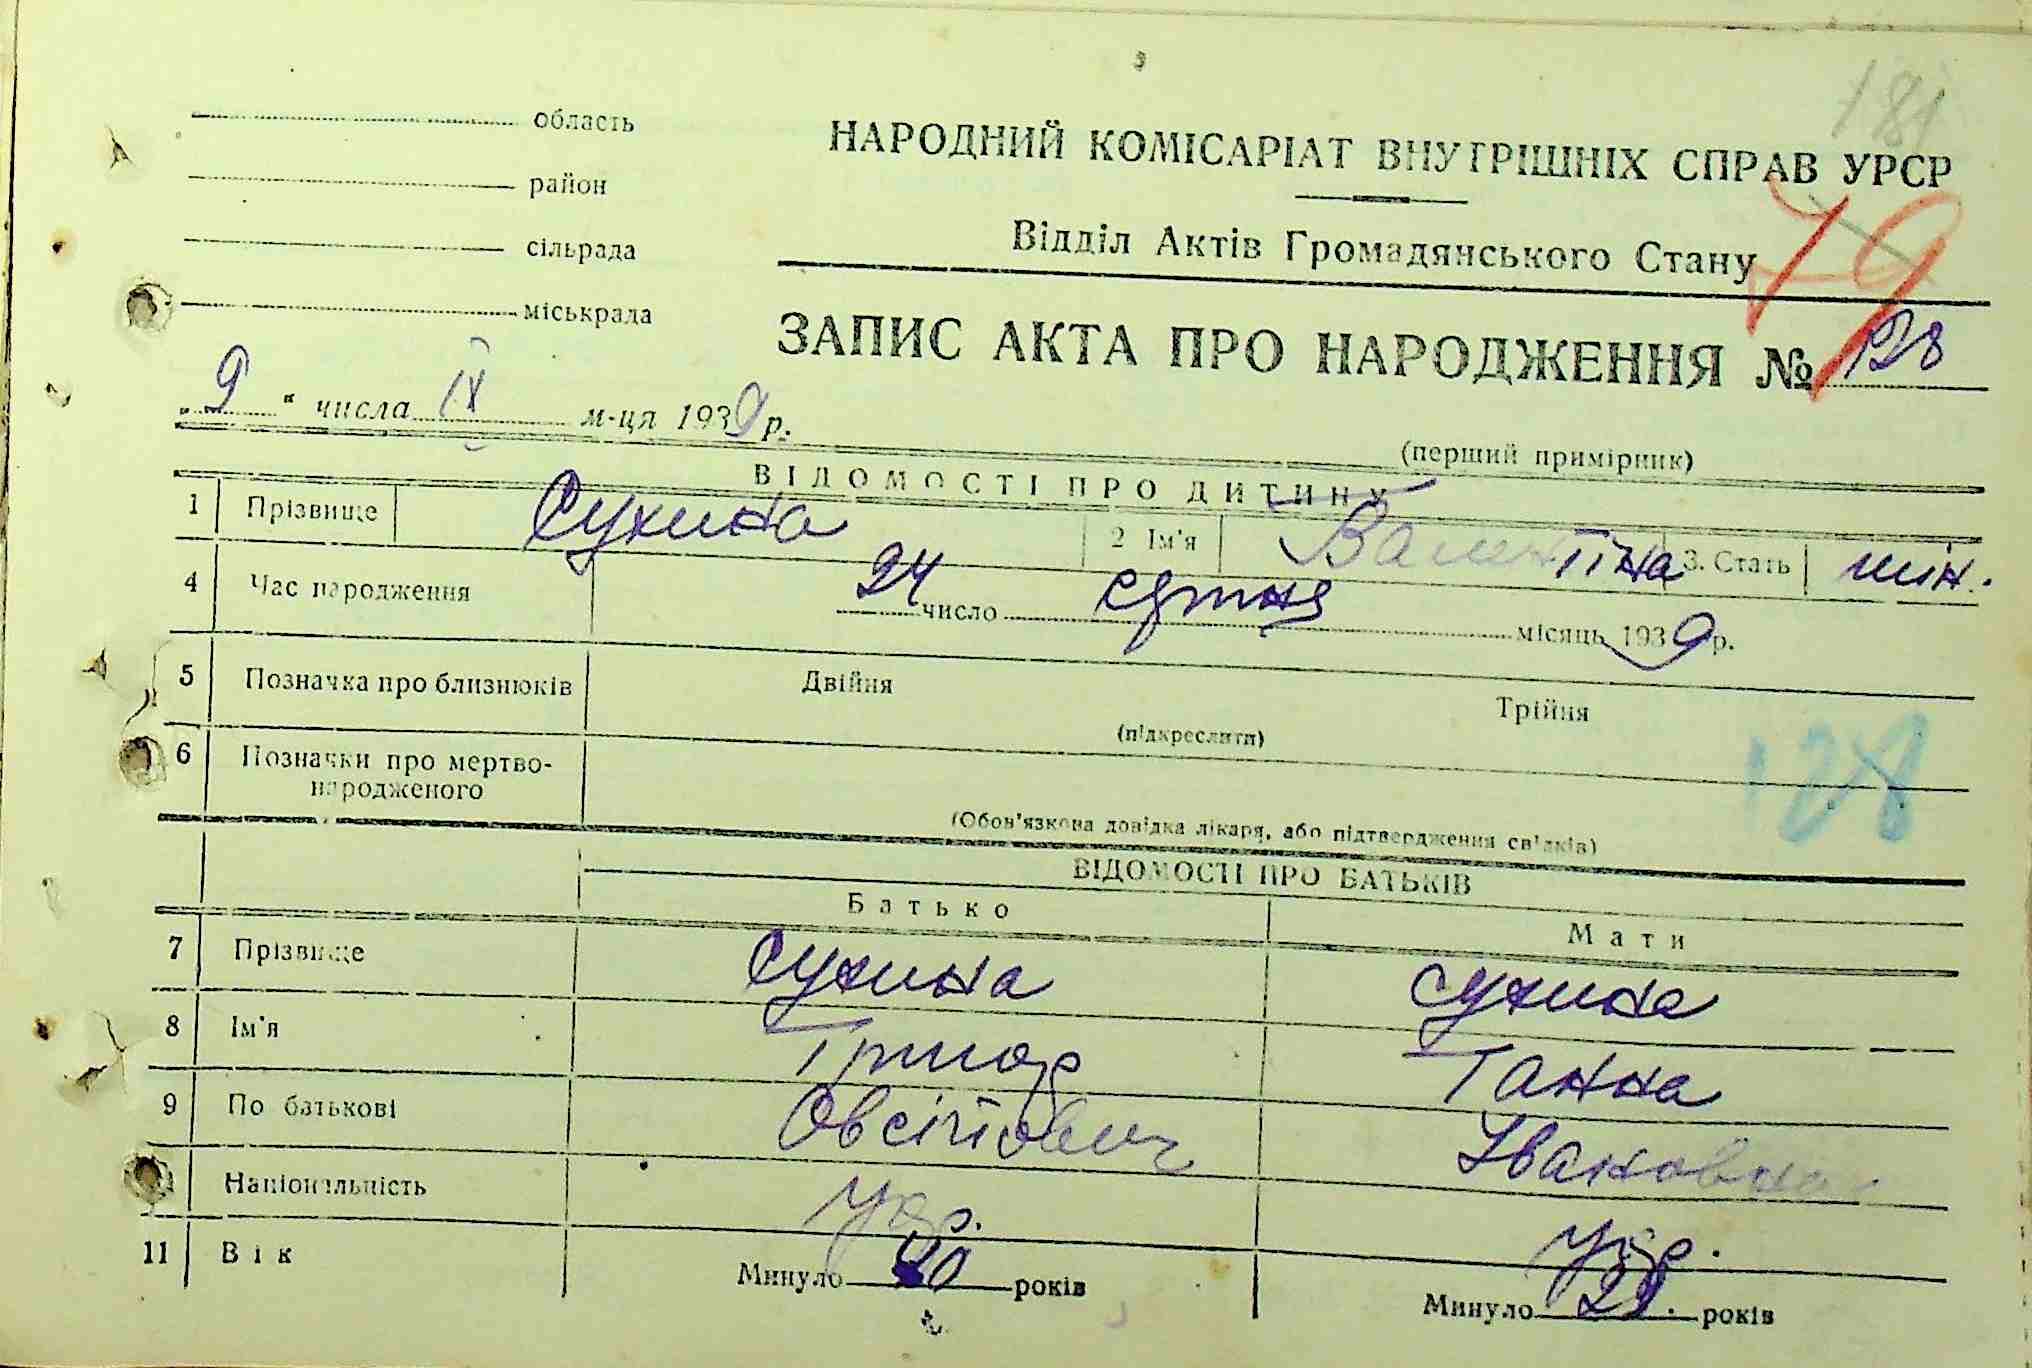 181
область
НАРОДНИЙ КОМІСАРІАТ ВНУТРІШНІХ СПРАВ УРСР
район
79
сільрада
Відділ Актів Громадянського Стану
міськрада
ЗАПИС АКТА ПРО НАРОДЖЕННЯ № 128
„9“ числа IX м-ця 1939 р.
(перший примірник)
ВІДОМОСТІ ПРО ДИТИНУ
1 Прізвище Сухина 2 Ім'я Валентіна 3. Стать жін.
4 Час народження 24 число серпня місяць 1939 р.
5 Позначка про близнюків Двійня Трійня
(підкреслити)
128
6 Позначки про мертво-
народженого
(Обов'язкова довідка лікаря, або підтвердження свідків)
ВІДОМОСТІ ПРО БАТЬКІВ
Батько Мати
7 Прізвище Сухина Сухина
8 Ім'я Григор Ганна
9 По батькові Овсійович Івановна
Національність Укр. Укр.
11 Вік Минуло років Минуло років